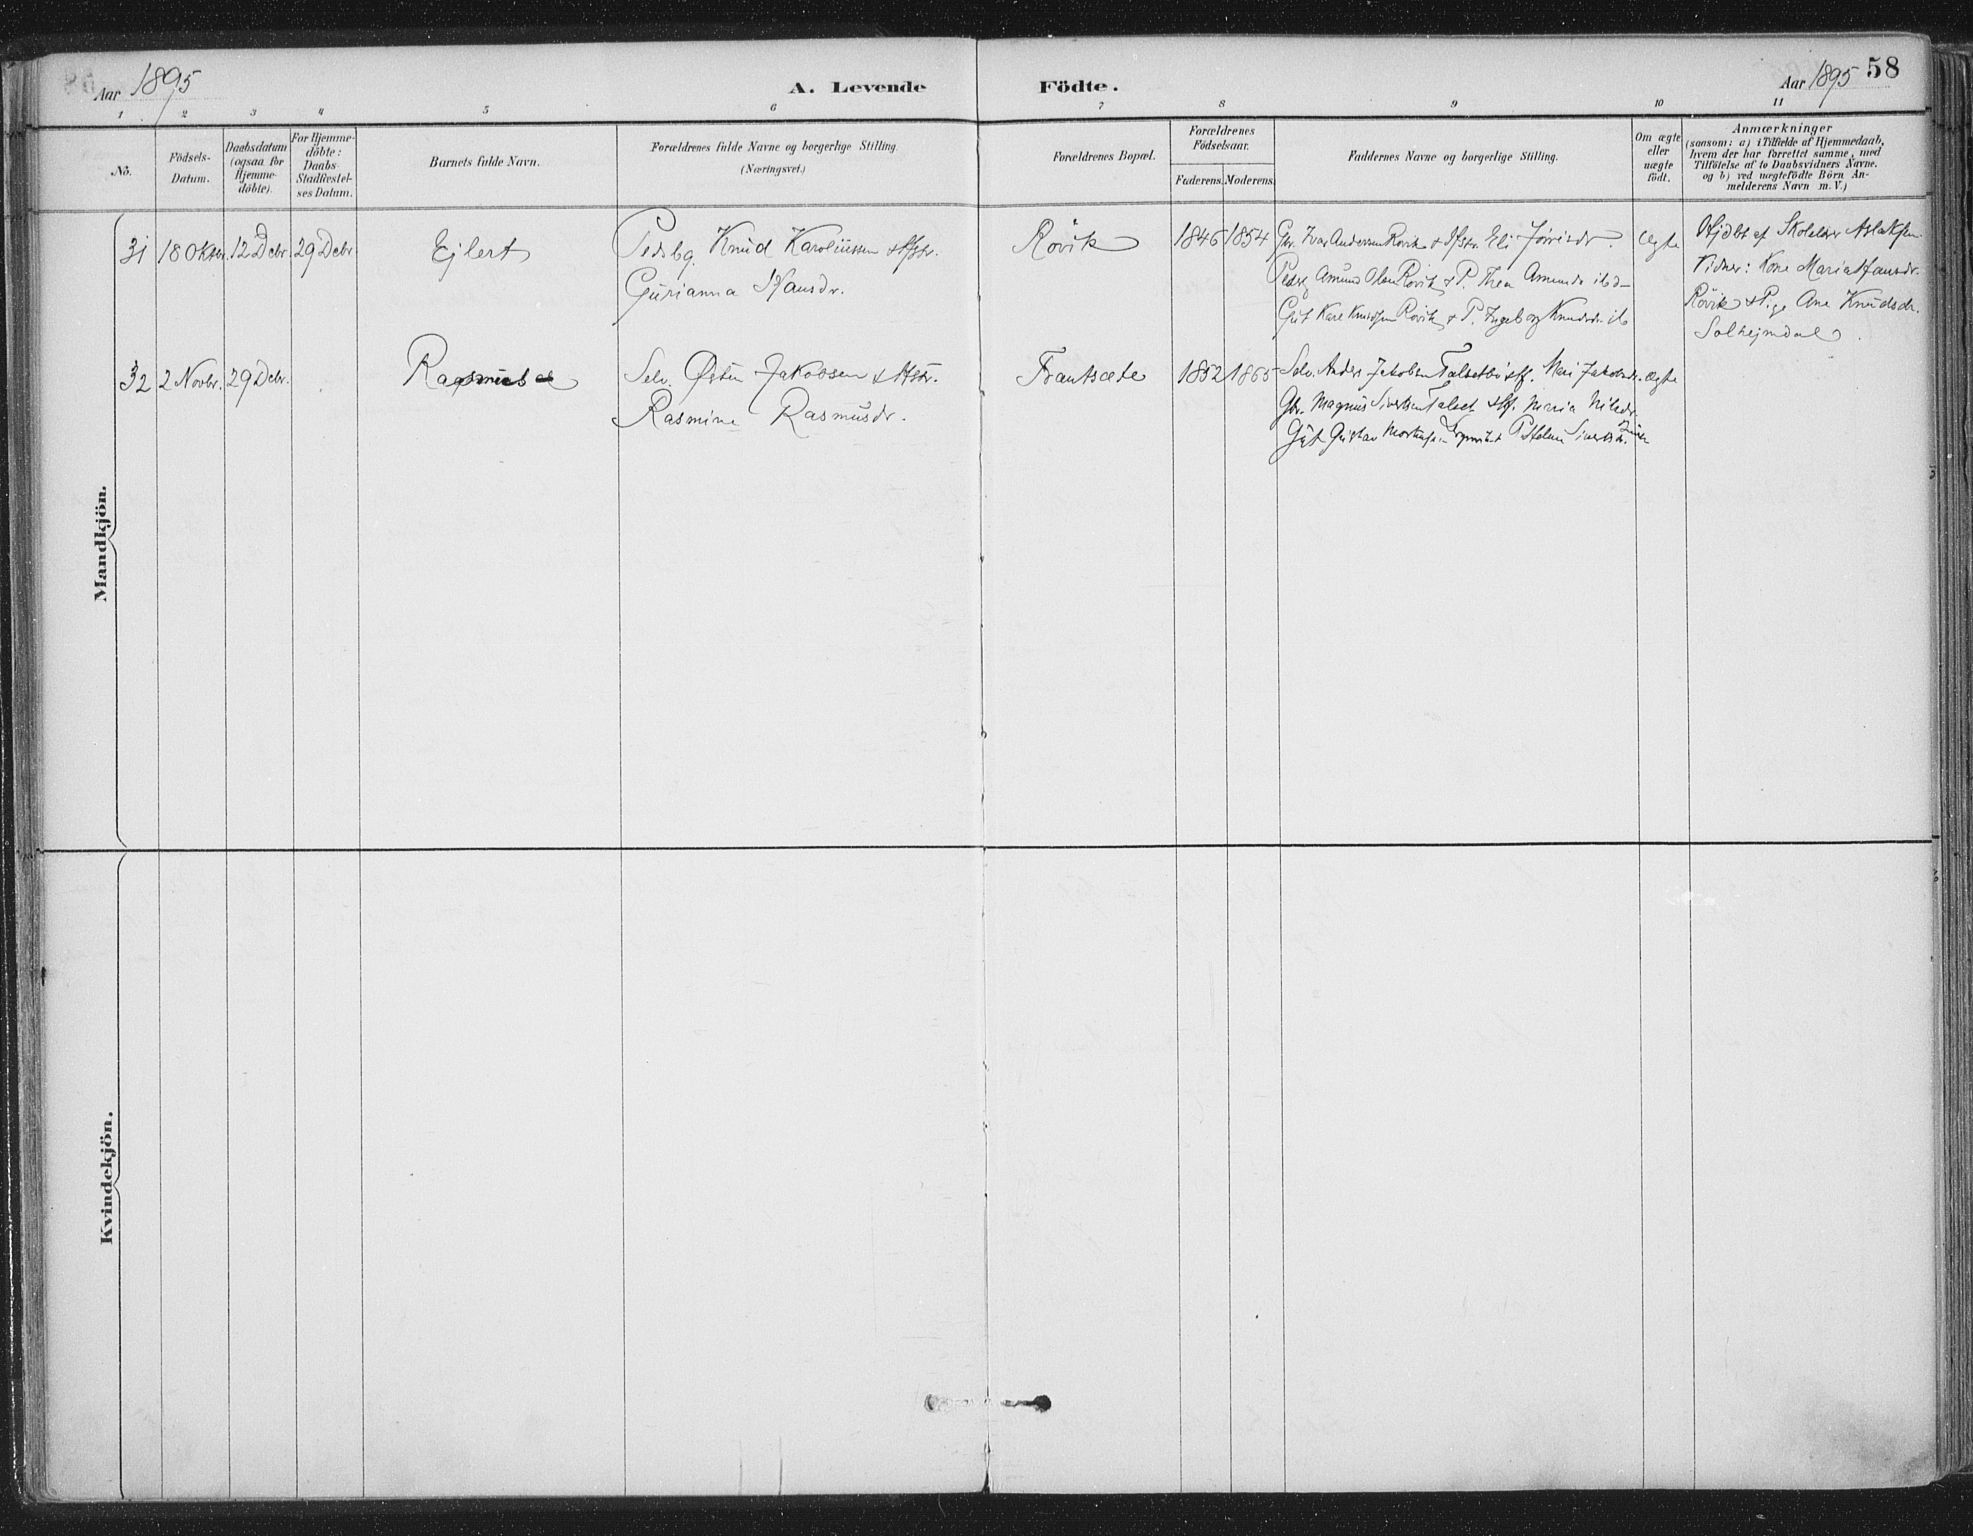 Aar 1895
A. Levende Födte.
Aar 1895 58
1 2 3 4 5 6 7 8 9 10 11
No.
Födsels-Datum.
Daabsdatum (ogsaa for Hjemme-döbte).
For Hjemme-döbte: Daabs-Stadfestel-ses Datum.
Barnets fulde Navn.
Forældrenes fulde Navne og borgerlige Stilling.
(Næringsvei.)
Forældrenes Bopæl.
Forældrenes Födselsaar.
Faderens. Moderens.
Faddernes Navne og borgerlige Stilling.
Om ægte eller uægte födt.
Anmærkninger
(saasom: a) i Tilfælde af Hjemmedaab,
hvem der har forrettet samme, med
Tilföielse af to Daabsvidners Navne.
og b) ved uægtefödte Börn An-
melderens Navn m. V.)
Mandkjön.
31 18 Oktbr. 12 Debr. 29 Debr. Ejlert
Pldsbg. Knud Karoliussen & Hstr.
Gurianna Hansdr.
Rövik 1846 1854
Gbr. Ivar Andersen Rovik & Hstr. Eli
Amund Olsen Rovik & P. Thea Amundsdr ibd
Gut Kare Knudsen Rovik & P. Ingeborg Knudsdr. ib
ægte
Hjdbt af Skolelær Aslaksen
Vidner: Kone Maria Hansdr.
Rövik & Pige Ane Knudsdr.
Solhejmdal.
32 2 Novbr. 29 Debr. Rasmus
Selv. Østen Jakobsen & Hstr.
Rasmine Rasmusdr.
Frantsæte 1852 1865
Selv. Anders Jakobsen Mari Jakobsdr.
ægte
Gbr. Magnus Sivertsen Talset & Hf. Maria Nilsdr.
Gut Gustav
Kvindekjön.